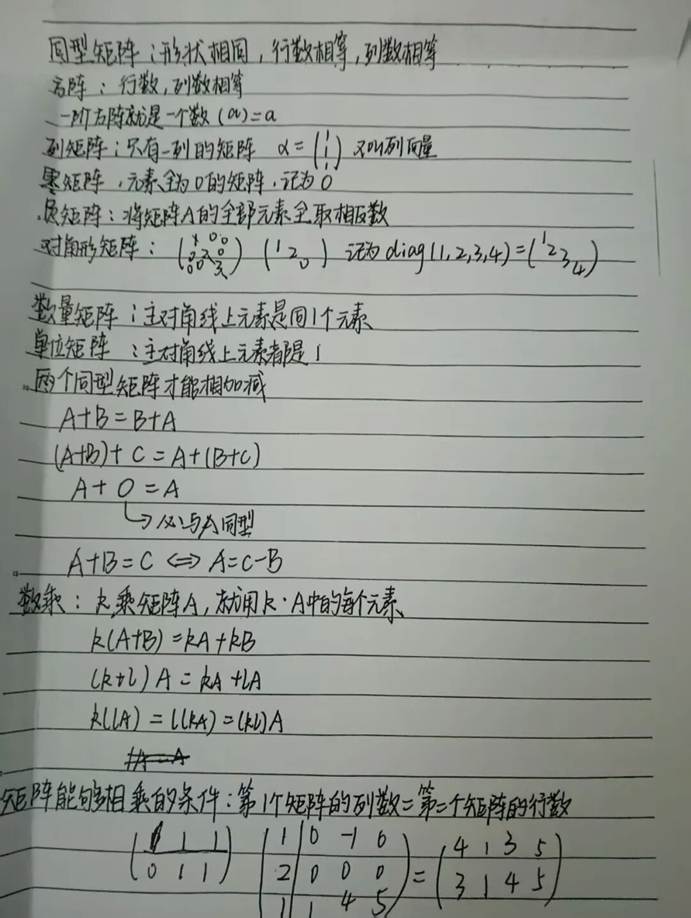 同型矩阵：形状相同，行数相等，列数相等
方阵：行数，列数相等
一阶方阵就是一个数 (a)=a
列矩阵：只有一列的矩阵 α=(1 1 1) 又叫列向量
零矩阵，元素全为0的矩阵，记为0
负矩阵：将矩阵A的全部元素全取相反数
对角形矩阵：(1 0 0 0 2 0 0 0 3) (1 2 0) 记为diag(1,2,3,4)=(1 2 3 4)
数量矩阵：主对角线上元素是同1个元素
单位矩阵：主对角线上元素都是1
两个同型矩阵才能相加减
A+B=B+A
(A+B)+C=A+(B+C)
A+O=A
↳必与A同型
A+B=C⇔A=C-B
数乘：k乘矩阵A，就用k·A中的每个元素
k(A+B)=kA+kB
(k+l)A=kA+lA
k(lA)=l(kA)=(kl)A
1A=A
矩阵能够相乘的条件：第1个矩阵的列数=第二个矩阵的行数
(1 1 1 (1 0 -1 0 (4 1 3 5
0 1 1) 2 0 0 0 = 3 1 4 5)
1 1 4 5)